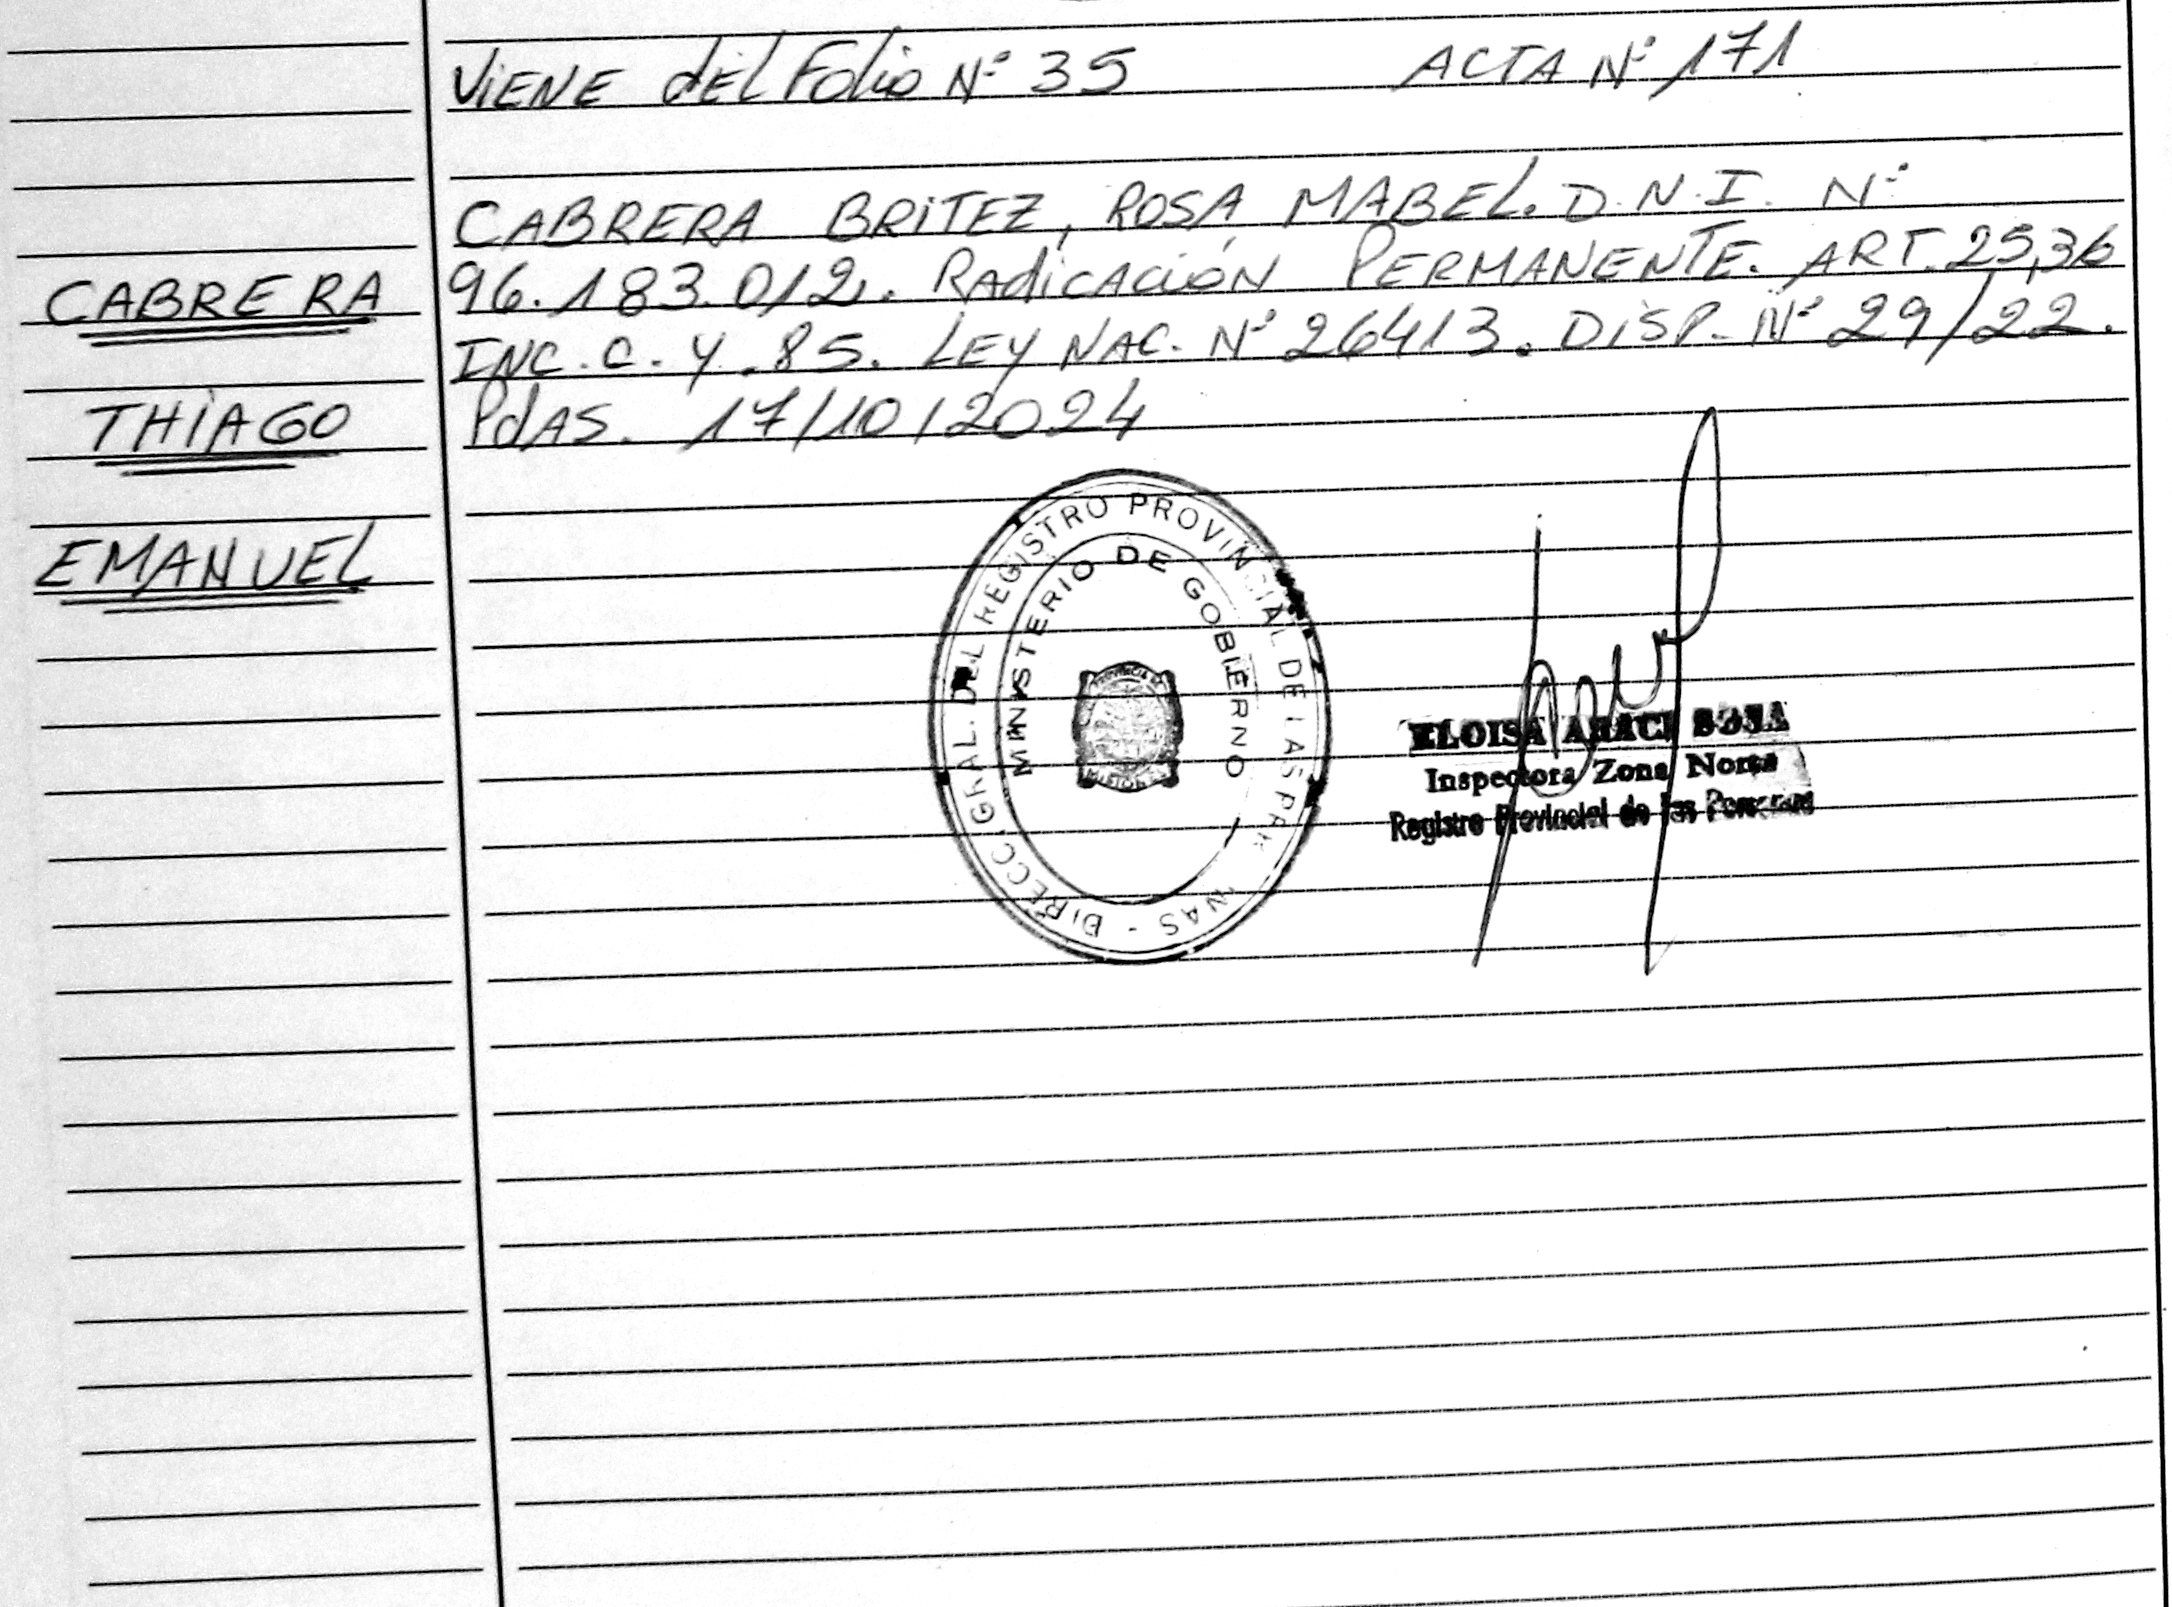 ViENE dEL Folio Nº 35 ACTA Nº 171
CABRERA BRiTEZ, ROSA MABEL. D.N.I. Nº
96.183.012. RAdiCACióN PERMANENTE. ART. 25,36
INC. C. Y. 85. LEY NAC. Nº 26413. DiSP. Nº 29/22.
PdAS. 17/10/2024
CABRERA
THiAGO
EMANUEL
DIRECC. GRAL. DEL REGISTRO PROVINCIAL DE LAS PERSONAS -
MINISTERIO DE GOBIERNO
ELOISA ARACI SOSA
Inspectora Zona Norte
Registro Provincial de las Personas